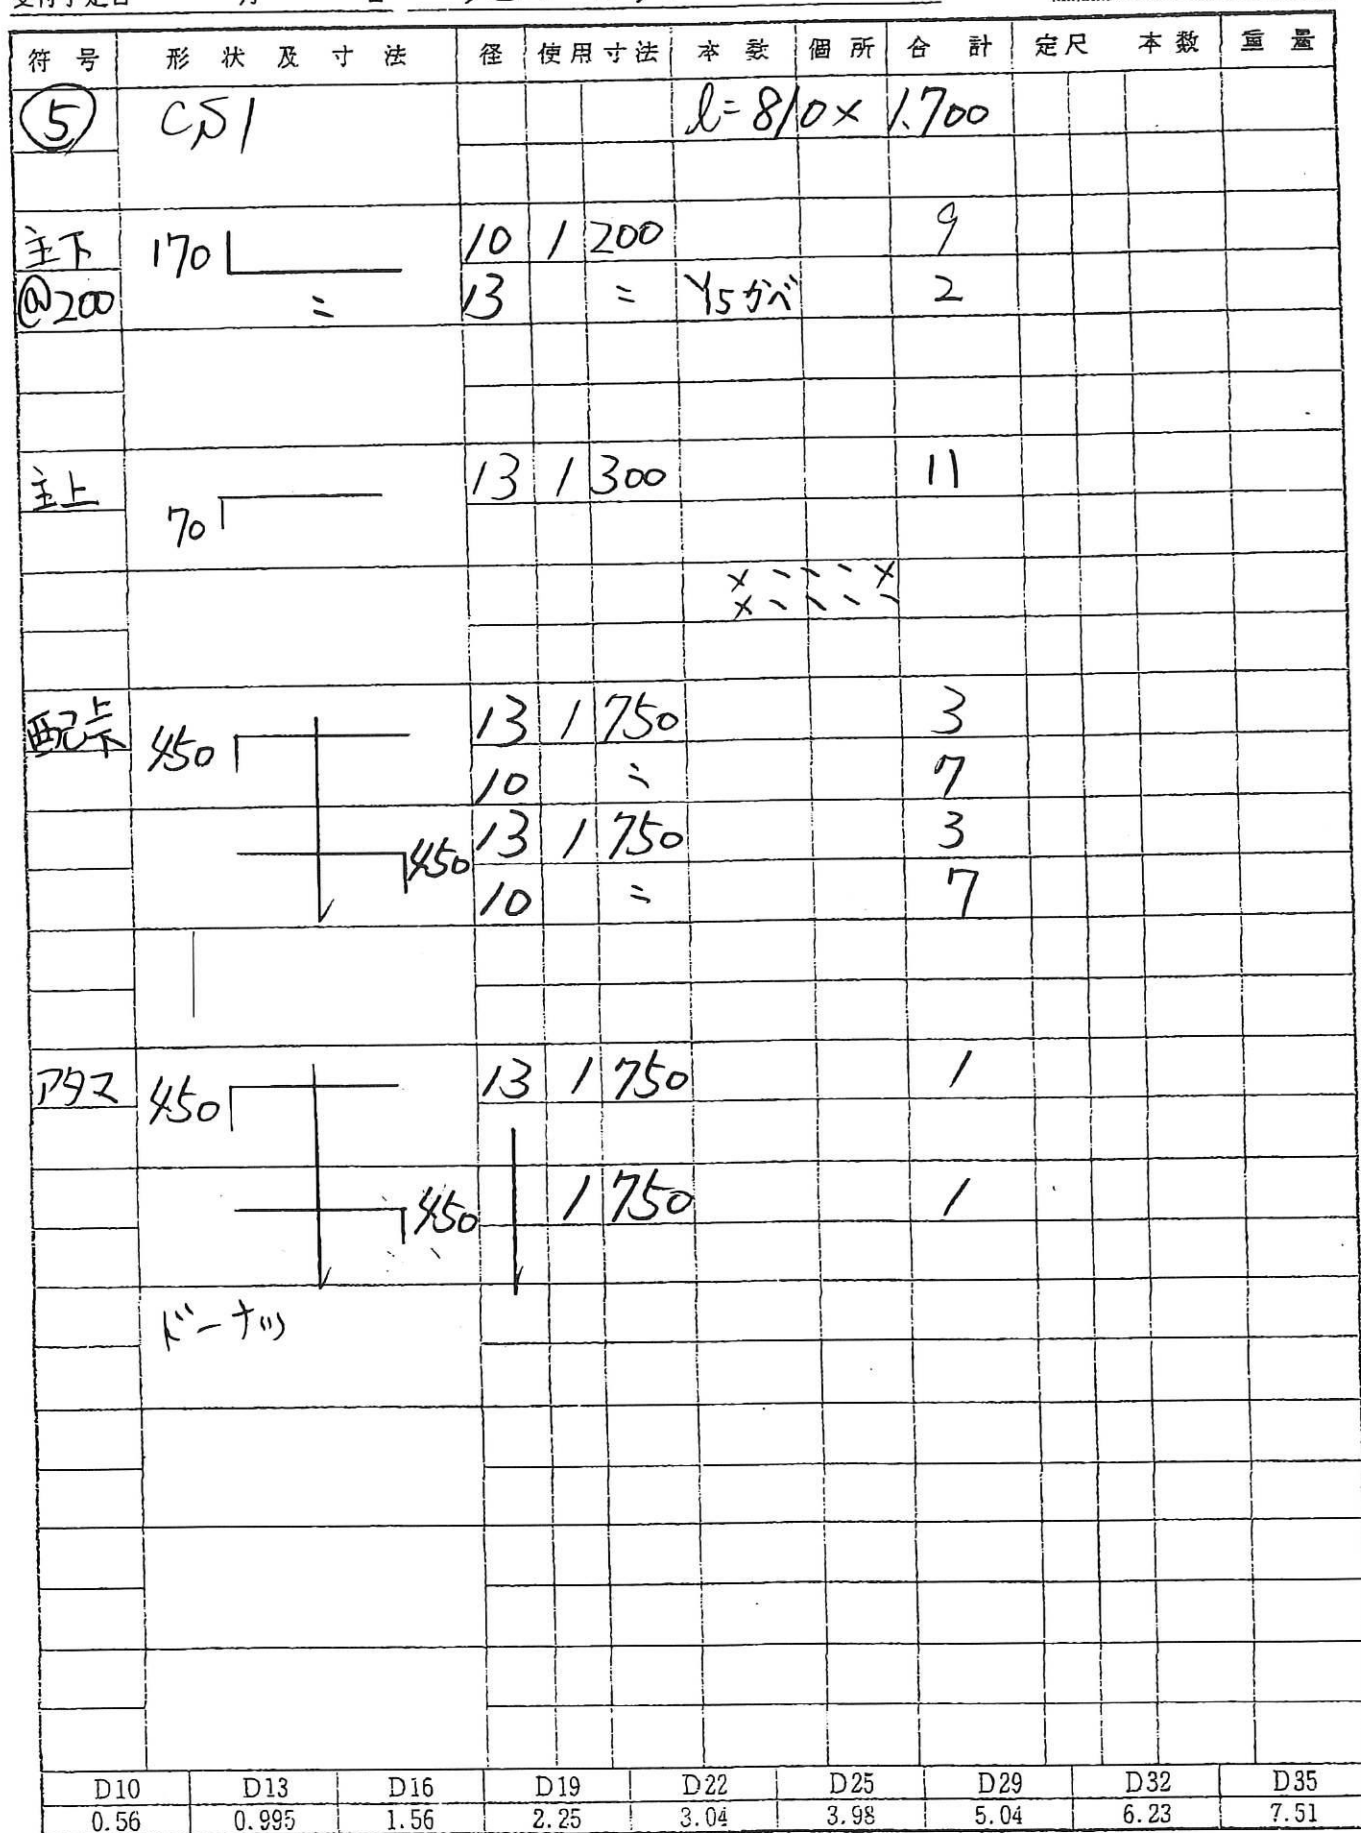 符号 形状及寸法 径 使用寸法 本数 個所 合計 定尺 本数 重量
⑤ CS1 l=810× 1.700
主下 170 10 1 200 9
@200 〃 13 〃 Y5かべ 2
主上 70 13 1 300 11
× 丶 丶 丶 ×
× 丶 丶 丶 丶
配上下 450 13 1 750 3
10 〃 7
450 13 1 750 3
10 〃 7
アタマ 450 13 1 750 1
450 1 750 1
ドーナツ
D10 D13 D16 D19 D22 D25 D29 D32 D35
0.56 0.995 1.56 2.25 3.04 3.98 5.04 6.23 7.51